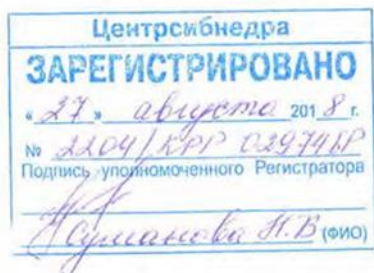 Центрсибнедра
ЗАРЕГИСТРИРОВАНО
« 27 » августа 2018 г.
№ 2204/КРР 02974БР
Подпись уполномоченного Регистратора
Суманова Н.В (ФИО)